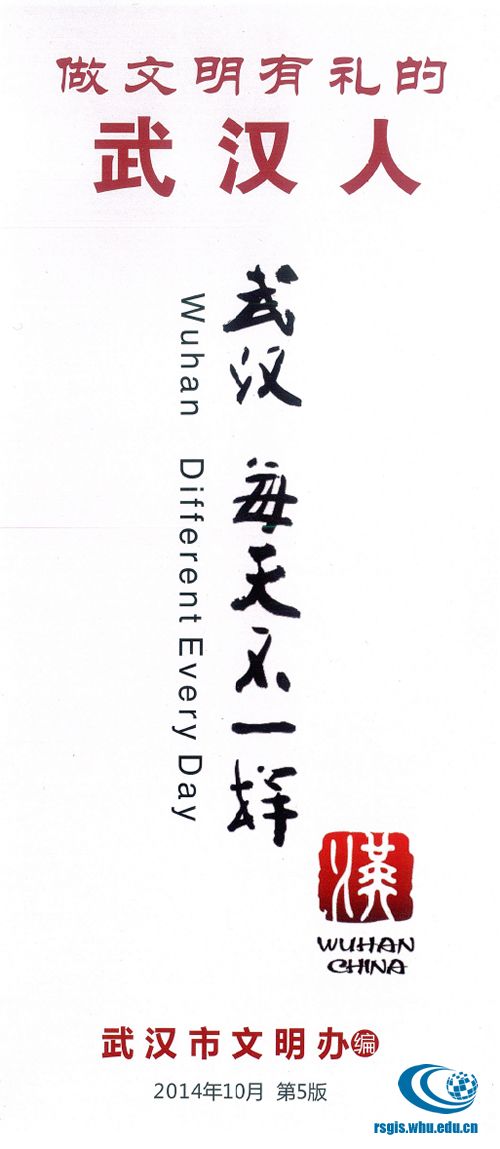 做文明有礼的
武汉人
武汉 每天不一样
Wuhan Different Every Day
漢
WUHAN
CHINA
武汉市文明办编
2014年10月 第5版
rsgis.whu.edu.cn